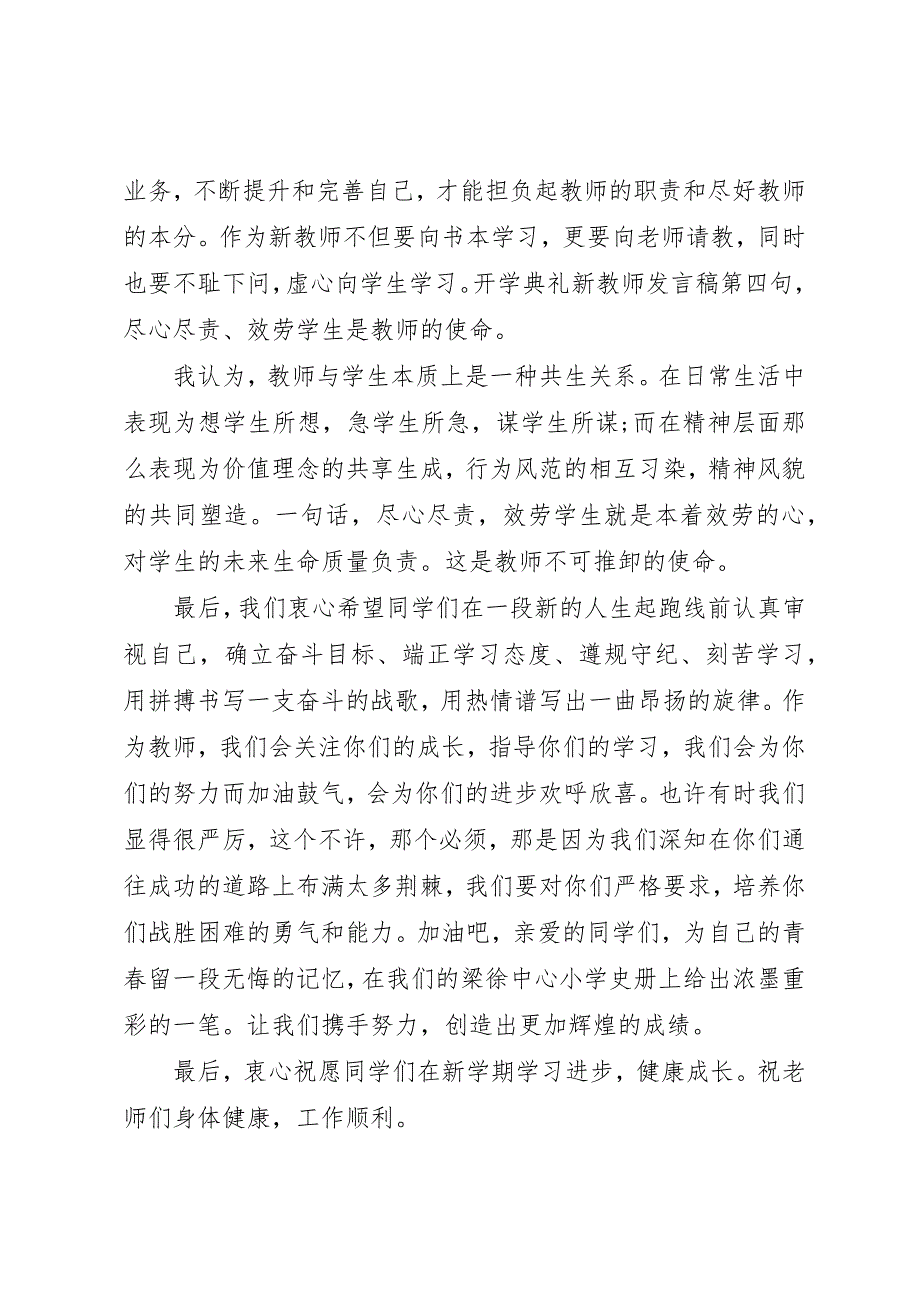 业务，不断提升和完善自己，才能担负起教师的职责和尽好教师
的本分。作为新教师不但要向书本学习，更要向老师请教，同时
也要不耻下问，虚心向学生学习。开学典礼新教师发言稿第四句，
尽心尽责、效劳学生是教师的使命。
我认为，教师与学生本质上是一种共生关系。在日常生活中
表现为想学生所想，急学生所急，谋学生所谋;而在精神层面那
么表现为价值理念的共享生成，行为风范的相互习染，精神风貌
的共同塑造。一句话，尽心尽责，效劳学生就是本着效劳的心，
对学生的未来生命质量负责。这是教师不可推卸的使命。
最后，我们衷心希望同学们在一段新的人生起跑线前认真审
视自己，确立奋斗目标、端正学习态度、遵规守纪、刻苦学习，
用拼搏书写一支奋斗的战歌，用热情谱写出一曲昂扬的旋律。作
为教师，我们会关注你们的成长，指导你们的学习，我们会为你
们的努力而加油鼓气，会为你们的进步欢呼欣喜。也许有时我们
显得很严厉，这个不许，那个必须，那是因为我们深知在你们通
往成功的道路上布满太多荆棘，我们要对你们严格要求，培养你
们战胜困难的勇气和能力。加油吧，亲爱的同学们，为自己的青
春留一段无悔的记忆，在我们的梁徐中心小学史册上给出浓墨重
彩的一笔。让我们携手努力，创造出更加辉煌的成绩。
最后，衷心祝愿同学们在新学期学习进步，健康成长。祝老
师们身体健康，工作顺利。